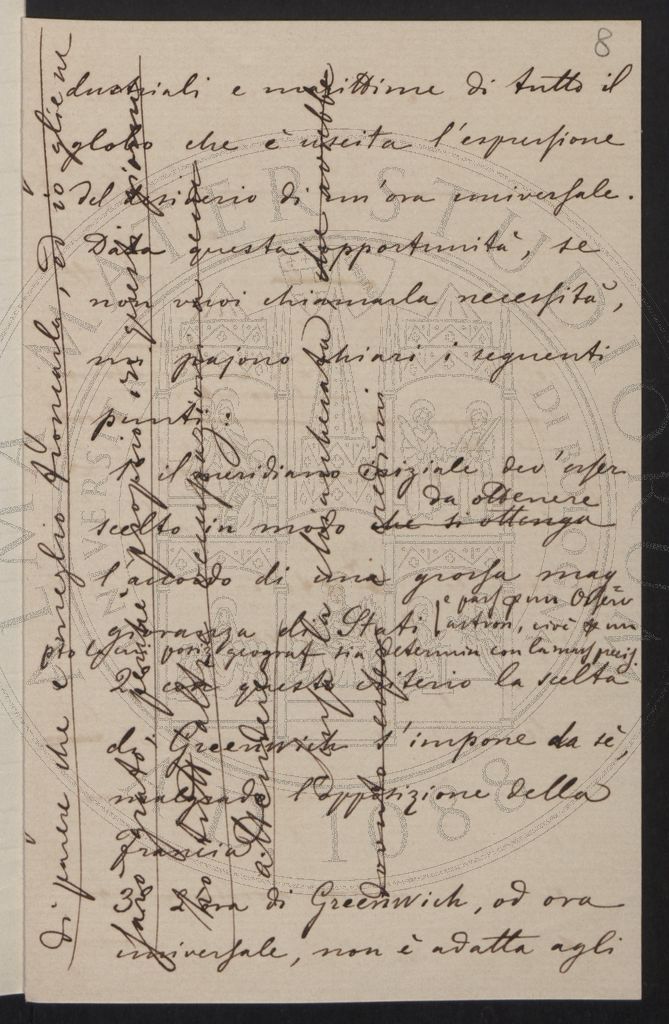 8
dustriali e marittime di tutto il
globo che è uscita l'espressione
del desiderio di un'ora universale.
Data questa opportunità, se
non vuoi chiamarla necessità,
mi pajono chiari i seguenti
punti:
1 il meridiano iniziale dev'esser
da ottenere
scelto in modo che si ottenga
l'accordo di una grossa mag
gioranza di Stati
e pass p un Osserv
astron, cioè p un
pto la cui posiz geograf sia determin con la mass precis
2 con questo criterio la scelta
di Greenwich s'impone da sè,
malgrado l'opposizione della
Francia
3 L'ora di Greenwich, od ora
universale, non è adatta agli
di parere che è meglio troncarla, ed io gliene
sarò grato, perchè proprio in questi giorni
ho tutt'altre occupazioni a cui
attendere
la che dovrebbe